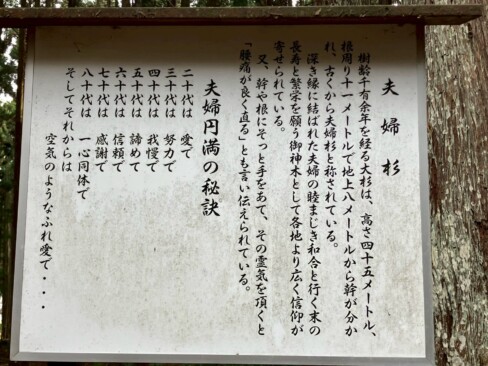 夫婦杉
樹齢千有余年を経る大杉は、高さ四十五メートル、
根周り十一メートルで地上八メートルから幹が分か
れ、古くから夫婦杉と称されている。
深き縁に結ばれた夫婦の睦まじき和合と行く末の
長寿と繁栄を願う御神木として各地より広く信仰が
寄せられている。
又、幹や根にそっと手をあて、その霊気を頂くと
「腰痛が良く直る」とも言い伝えられている。
夫婦円満の秘訣
二十代は 愛で
三十代は 努力で
四十代は 我慢で
五十代は 諦めで
六十代は 信頼で
七十代は 感謝で
八十代は 一心同体で
そしてそれからは
空気のようなふれ愛で・・・・